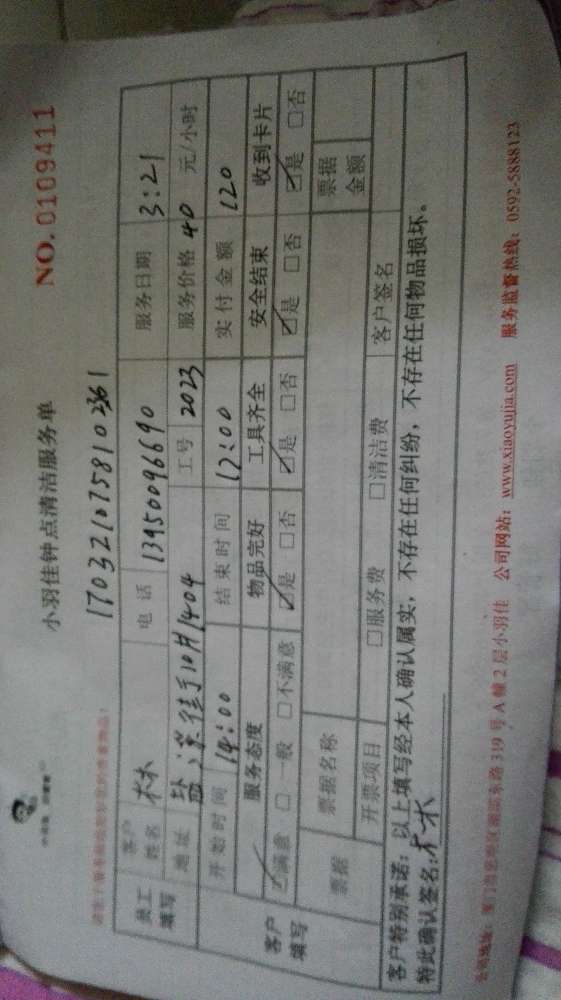 小羽佳钟点清洁服务单
NO.0109411
员工填写
客户姓名 林 电话 13950096690 服务日期 3:21
地址 工号 2023 服务价格 40 元/小时
开始时间 14:00 结束时间 17:00 实付金额 120
客户填写
服务态度 物品完好 工具齐全 安全结束 收到卡片
☑满意 □一般 □不满意 ☑是 □否 ☑是 □否 ☑是 □否 ☑是 □否
票据 票据名称 票据金额
开票项目 □服务费 □清洁费 客户签名
客户特别承诺：以上填写经本人确认属实，不存在任何纠纷，不存在任何物品损坏。
特此确认签名：林
公司地址： 319号A幢2层小羽佳 公司网站：www.xiaoyujia.com 服务监督热线：0592-5888123